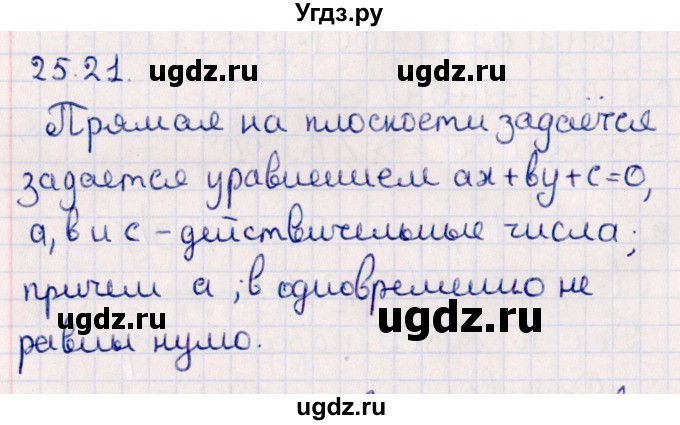 Угдз.ру
25.21.
ugdz.ru ugdz.ru
Прямая на плоскости задаётся
задается уравнением ax+by+c=0,
a, b и c – действительные числа;
причем a ; b одновременно не
равны нулю.
ugdz.ru ugdz.ru
ugdz.ru